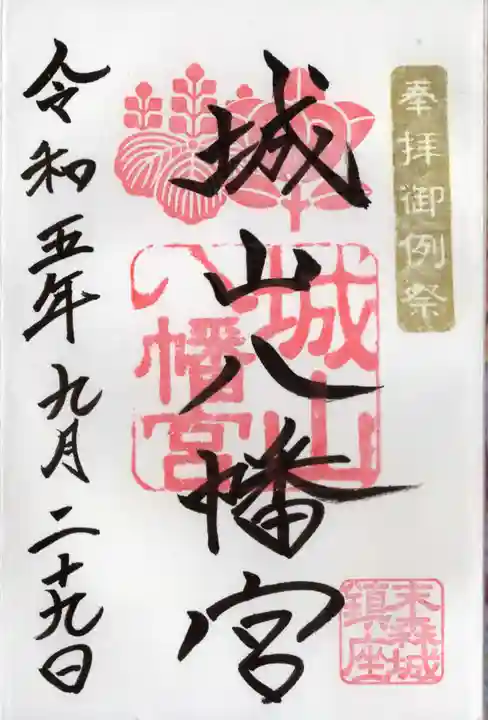 奉拝御例祭
城山八幡宮
城山
八幡宮
末森城
鎮座
令和五年九月二十九日